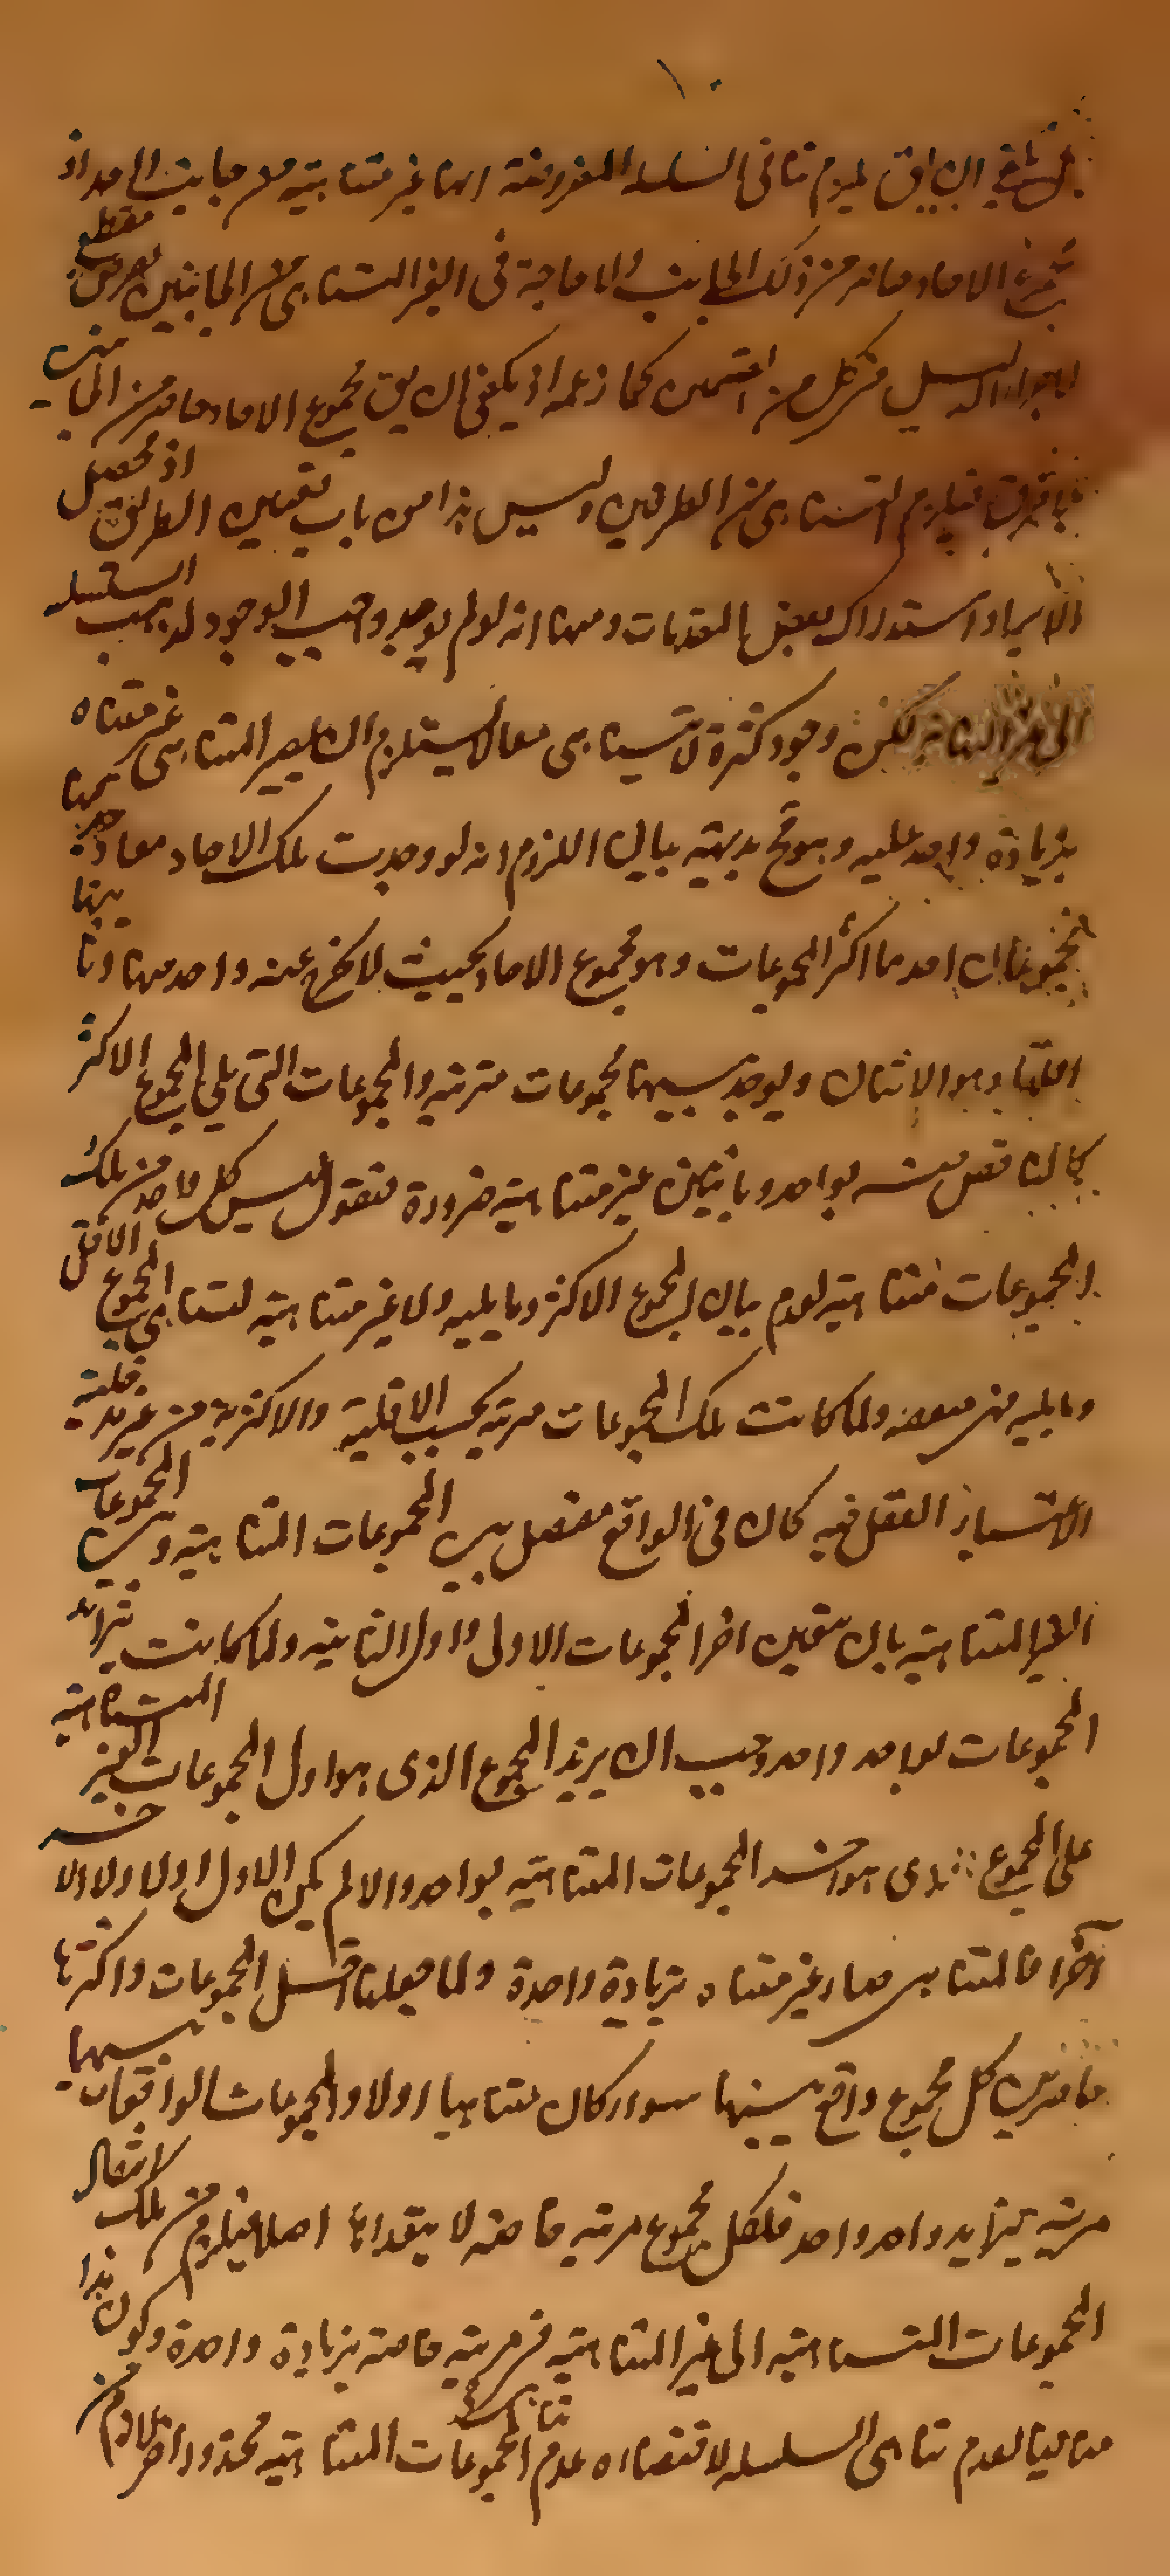 ١٠
يلزم تناهى السلسلة المفروضة انها غير متناهية من جانب المعد اذ
جميع الاحاد من ذلك الجانب ولا حاجة فى الغير المتناهى من الجانبين بفرض مقطع
الدليل فى كل من القسمين كما زعمه اذ يكفى ان يق مجموع الاحاد من الجانبين
فيلزم التناهى من الطرفين وليس هذا من باب تعيين الطريق اذ محصل
الايراد استدراك بعض المقدمات ومنها انه لو لم يوجد واجب الوجود لذهب السلسلة
الى غير النهاية لكن وجود كثرة لا تتناهى معا يستلزم ان يصير المتناهى غير متناه
بزيادة واحد عليه وهو مح بديهة بيان اللزوم انه لو وجدت تلك الاحاد معا وجد منها
مجموعان احدهما اكثر المجموعات وهو مجموع الاحاد بحيث لا يخرج عنه واحد منها وثانيهما
اقلها وهو الاثنان ويوجد بينهما مجموعات مترتبة والمجموعات التى يلى المجموع الاكثر
كان ناقص منه بواحد وباثنين غير متناهية ضرورة فنقول ليس كل واحد من تلك
المجموعات متناهية لعدم بيان المجموع الاكثر وما يليه ولا غير متناهية لتناهى المجموع الاقل
وما يليه من بعضه ولما كانت تلك المجموعات مرتبة بحسب الاقلية والاكثرية من غير مدخلية
لاعتبار العقل فيه كان فى الواقع مفصل بين المجموعات المتناهية وبين المجموعات
الغير المتناهية بان يتعين اخر المجموعات الاولى واول الثانية ولما كانت تزايد
المجموعات بواحد واحد وجب ان يزيد المجموع الذى هو اول المجموعات الغير المتناهية
على المجموع الذى هو اخر المجموعات المتناهية بواحد والا لم يكن الاول اولا ولا الاخر
آخرا فالمتناهى صار غير متناه بزيادة واحدة ولما جعلنا اقل المجموعات واكثرها
حاصرين كل مجموع واقع بينهما سواء كان متناهيا او لا والمجموعات الواقعات بينهما
مرتبة بتزايد واحد واحد فلكل مجموع مرتبة خاصة لا يتعداها اصلا فيلزم الانتقال من تلك
المجموعات المتناهية الى غير المتناهية فى مرتبة خاصة بزيادة واحدة وكون هذا
منافيا لعدم تناهى السلسلة لاقتضاءه عدم تناهى المجموعات المتناهية محذور اخر لازم من